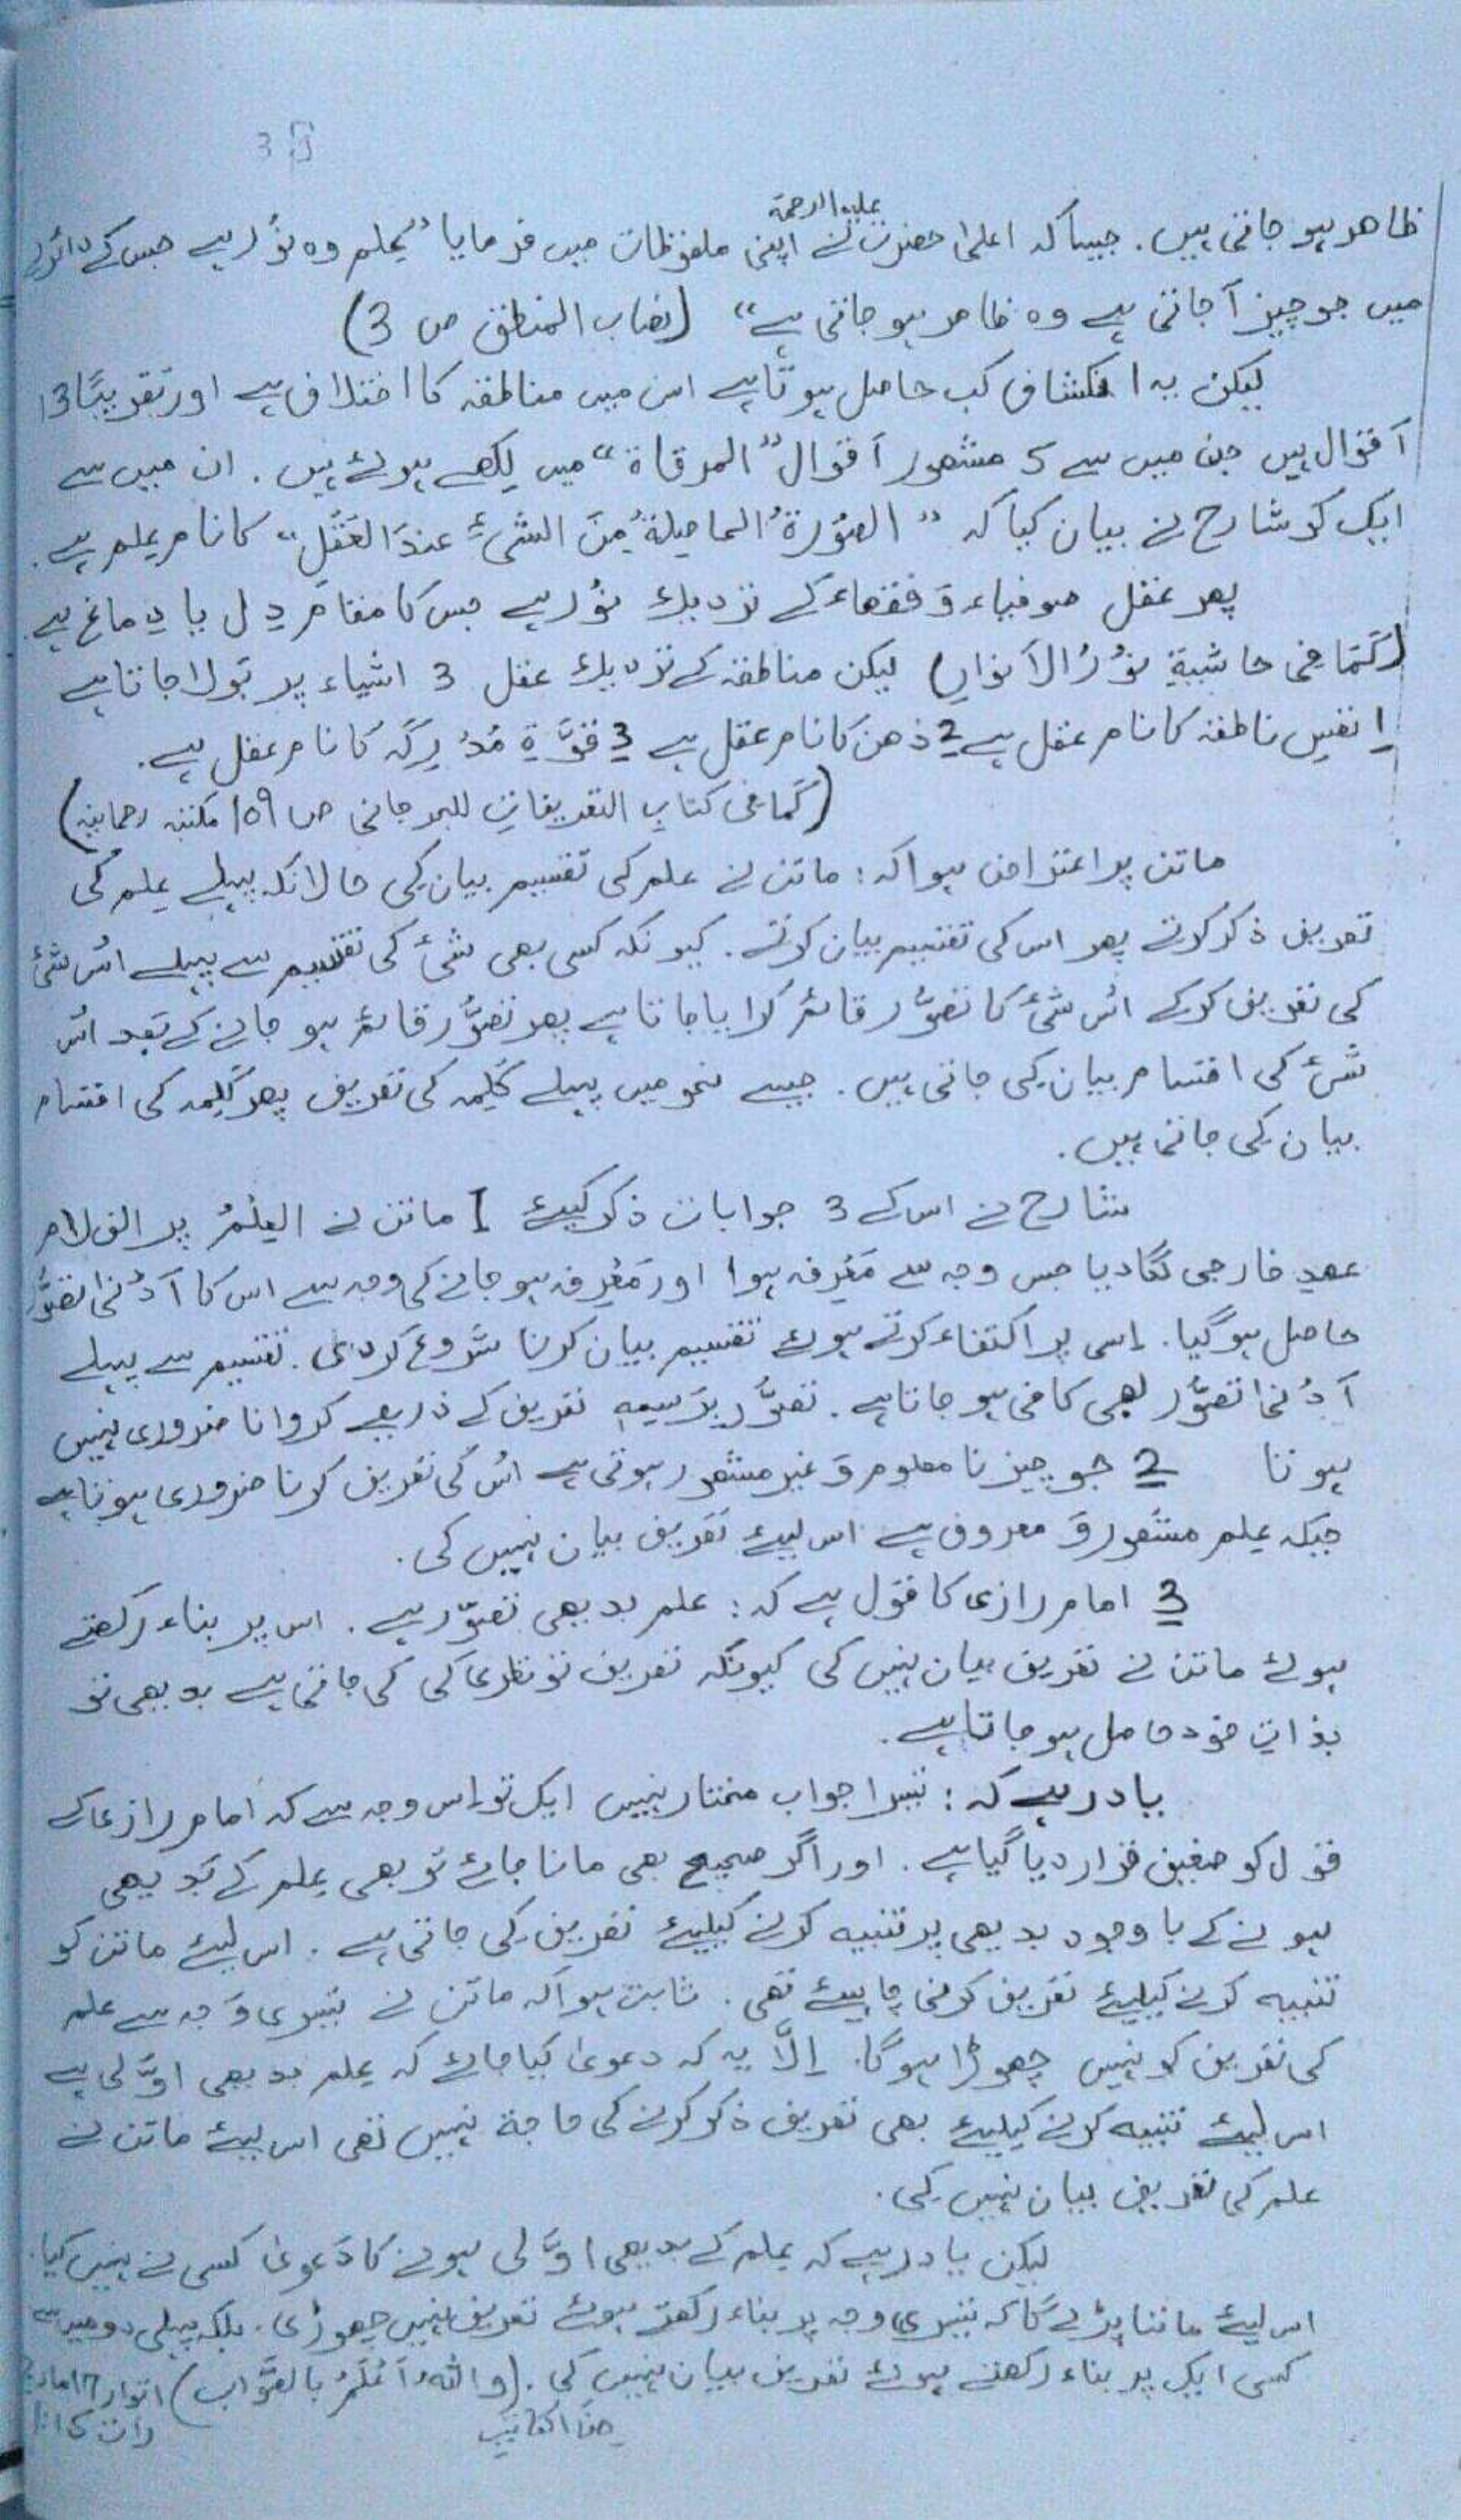 38
علیہ الرحمۃ
ظاہر ہو جاتی ہیں. جیسا کہ اعلیٰ حضرت نے اپنی ملفوظات میں فرمایا "عِلم وہ نُور ہے جس کے دائرے
میں جو چیز آ جاتی ہے وہ ظاہر ہو جاتی ہے" (نصاب المنطق ص 3)
لیکن یہ انکشاف کب حاصل ہوتا ہے اس میں مناطقہ کا اختلاف ہے اور تقریبًا 13
اَقوال ہیں جن میں سے 5 مشھور اَقوال "المرقاۃ" میں لِکھے ہوئے ہیں. ان میں سے
ایک کو شارح نے بیان کیا کہ "الصُّوْرَۃُ الحاصِلۃُ مِنَ الشیءِ عندَ العَقْلِ" کا نام عِلم ہے.
پھر عقل صوفیاء وَ فقھاء کے نزدیک نُور ہے جس کا مقام دِل یا دِماغ ہے.
(کَمَا فی حاشیۃِ نُوْرُ الاَنوار) لیکن مناطقہ کے نزدیک عقل 3 اشیاء پر بَولا جاتا ہے
1 نفسِ ناطقہ کا نام عقل ہے 2 ذھن کا نام عقل ہے 3 قوَّۃ مُدْرِکَہ کا نام عقل ہے.
(کَمَا فی کتابِ التعریفاتِ للجرجانی ص 159 مکتبہ رحمانیہ)
ماتن پر اعتراض ہوا کہ: ماتن نے علم کی تقسیم بیان کِی حالانکہ پہلے عِلم کی
تعریف ذکر کرتے پھر اس کی تقسیم بیان کرتے. کیونکہ کسی بھی شیٔ کی تقسیم سے پہلے اُس شیٔ
کی تعریف کرکے اُس شیٔ کا تصَوُّر قائم کرایا جاتا ہے پھر تصَوُّر قائم ہو جانے کے بَعد اُس
شیٔ کی اقسام بیان کِی جاتی ہیں. جیسے نحو میں پہلے کَلِمہ کی تعریف پھر کَلِمہ کی اقسام
بیان کِی جاتی ہیں.
شارح نے اس کے 3 جوابات ذکر کیئے 1 ماتن نے العِلْمُ پر الف لام
عھدِ خارجی لگا دیا جس وجہ سے مَعْرِفہ ہوا اور مَعْرِفہ ہو جانے کی وجہ سے اس کا اَدْنٰی تصَوُّر
حاصل ہو گیا. اِسی پر اکتفاء کرتے ہوئے تقسیم بیان کرنا شروع کردی. تقسیم سے پہلے
اَدْنٰی تصَوُّر بھی کافی ہو جاتا ہے. تصَوُّر بِرَسمِہٖ تعریف کے ذریعے کروانا ضروری نہیں
ہوتا 2 جو چیز نا معلوم وَ غیر مشھور ہوتی ہے اُس کی تعریف کرنا ضروری ہوتا ہے
جبکہ عِلم مشھور وَ معروف ہے اس لیئے تعریف بیان نہیں کی.
3 امام رازی کا قول ہے کہ: علم بدیھی تصوّر ہے. اس پر بناء رکھتے
ہوئے ماتن نے تعریف بیان نہیں کی کیونکہ تعریف تو نظری کی کی جاتی ہے بدیھی تو
بذاتِ خود حاصل ہو جاتا ہے.
یاد رہے کہ: تیسرا جواب مختار نہیں ایک تو اِس وجہ سے کہ امام رازی کے
قول کو ضعیف قرار دیا گیا ہے. اور اگر صحیح بھی مانا جائے تو بھی عِلم کے بَدیھی
ہونے کے باوجود بدیھی پر تنبیہ کرنے کیلیئے تعریف کِی جاتی ہے. اس لیئے ماتن کو
تنبیہ کرنے کیلیئے تعریف کرنی چاہیئے تھی. ثابت ہوا کہ ماتن نے تیسری وَجہ سے علم
کی تعریف کو نہیں چھوڑا ہوگا. اِلَّا یہ کہ دعویٰ کیا جائے کہ عِلم بدیھی اوَّلی ہے
اس لیئے تنبیہ کرنے کیلیئے بھی تعریف ذکر کرنے کی حاجۃ نہیں تھی اس لیئے ماتن نے
علم کی تعریف بیان نہیں کِی.
لیکن یاد رہے کہ عِلم کے بدیھی اوَّلی ہونے کا دَعویٰ کسی نے نہیں کیا.
اس لیئے ماننا پڑے گا کہ تیسری وجہ پر بناء رکھتے ہوئے تعریف نہیں چھوڑی. بلکہ پہلی دو میں سے
کسی ایک پر بناء رکھتے ہوئے تعریف بیان نہیں کی. (و اللہُ اَعْلَمُ بالصَّواب) اتوار 17
رات